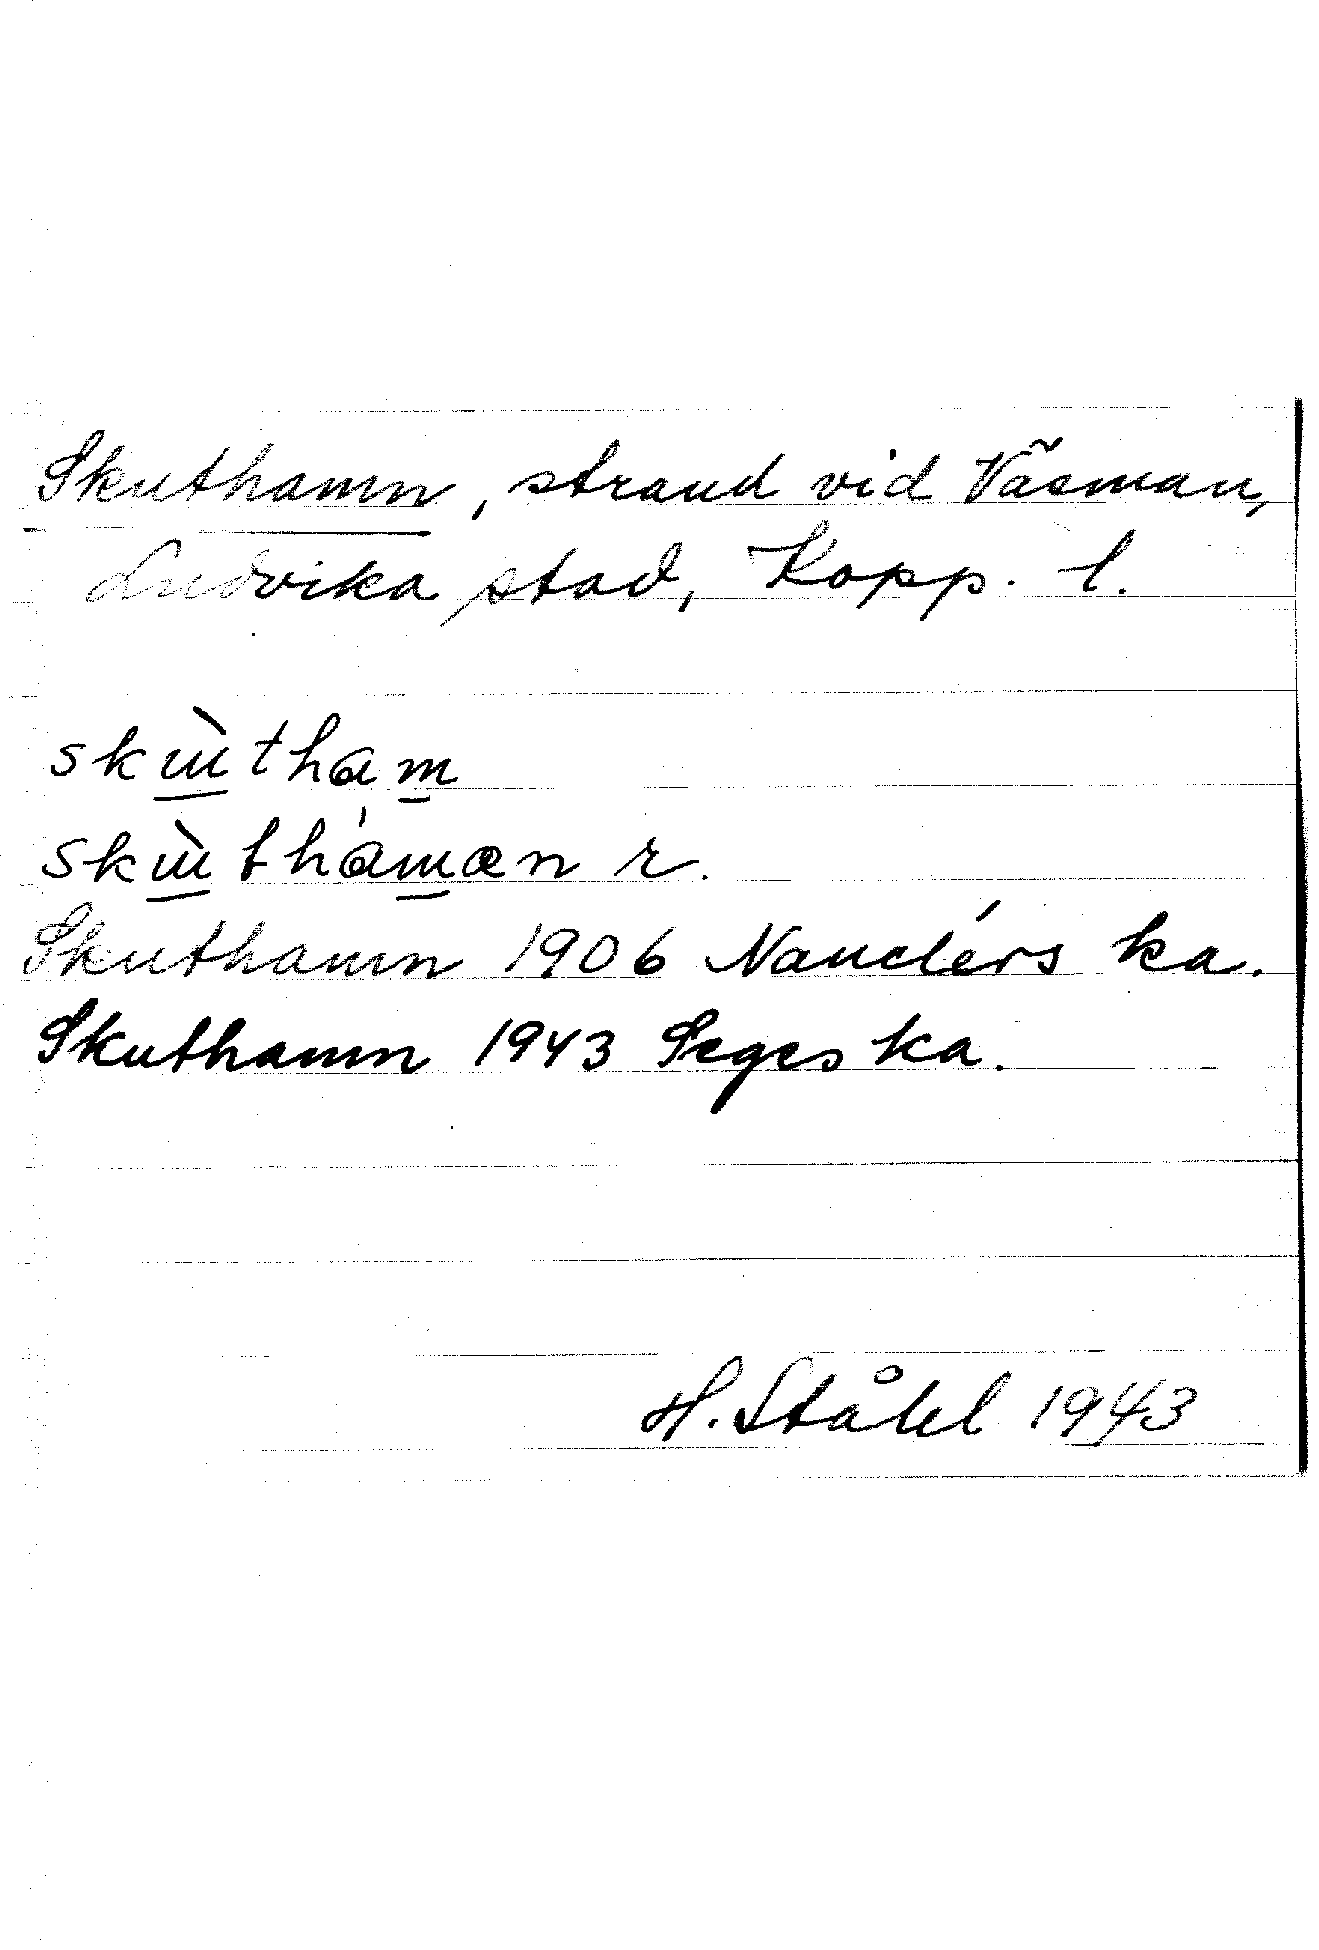 Skuthamn, strand vid Väsman,
Ludvika stad, Kopp. l.
skɯ̀tham
skɯ̀thamæn r.
Skuthamn 1906 Nauclérs ka.
Skuthamn 1943 Seges ka.
H. Ståhl 1943